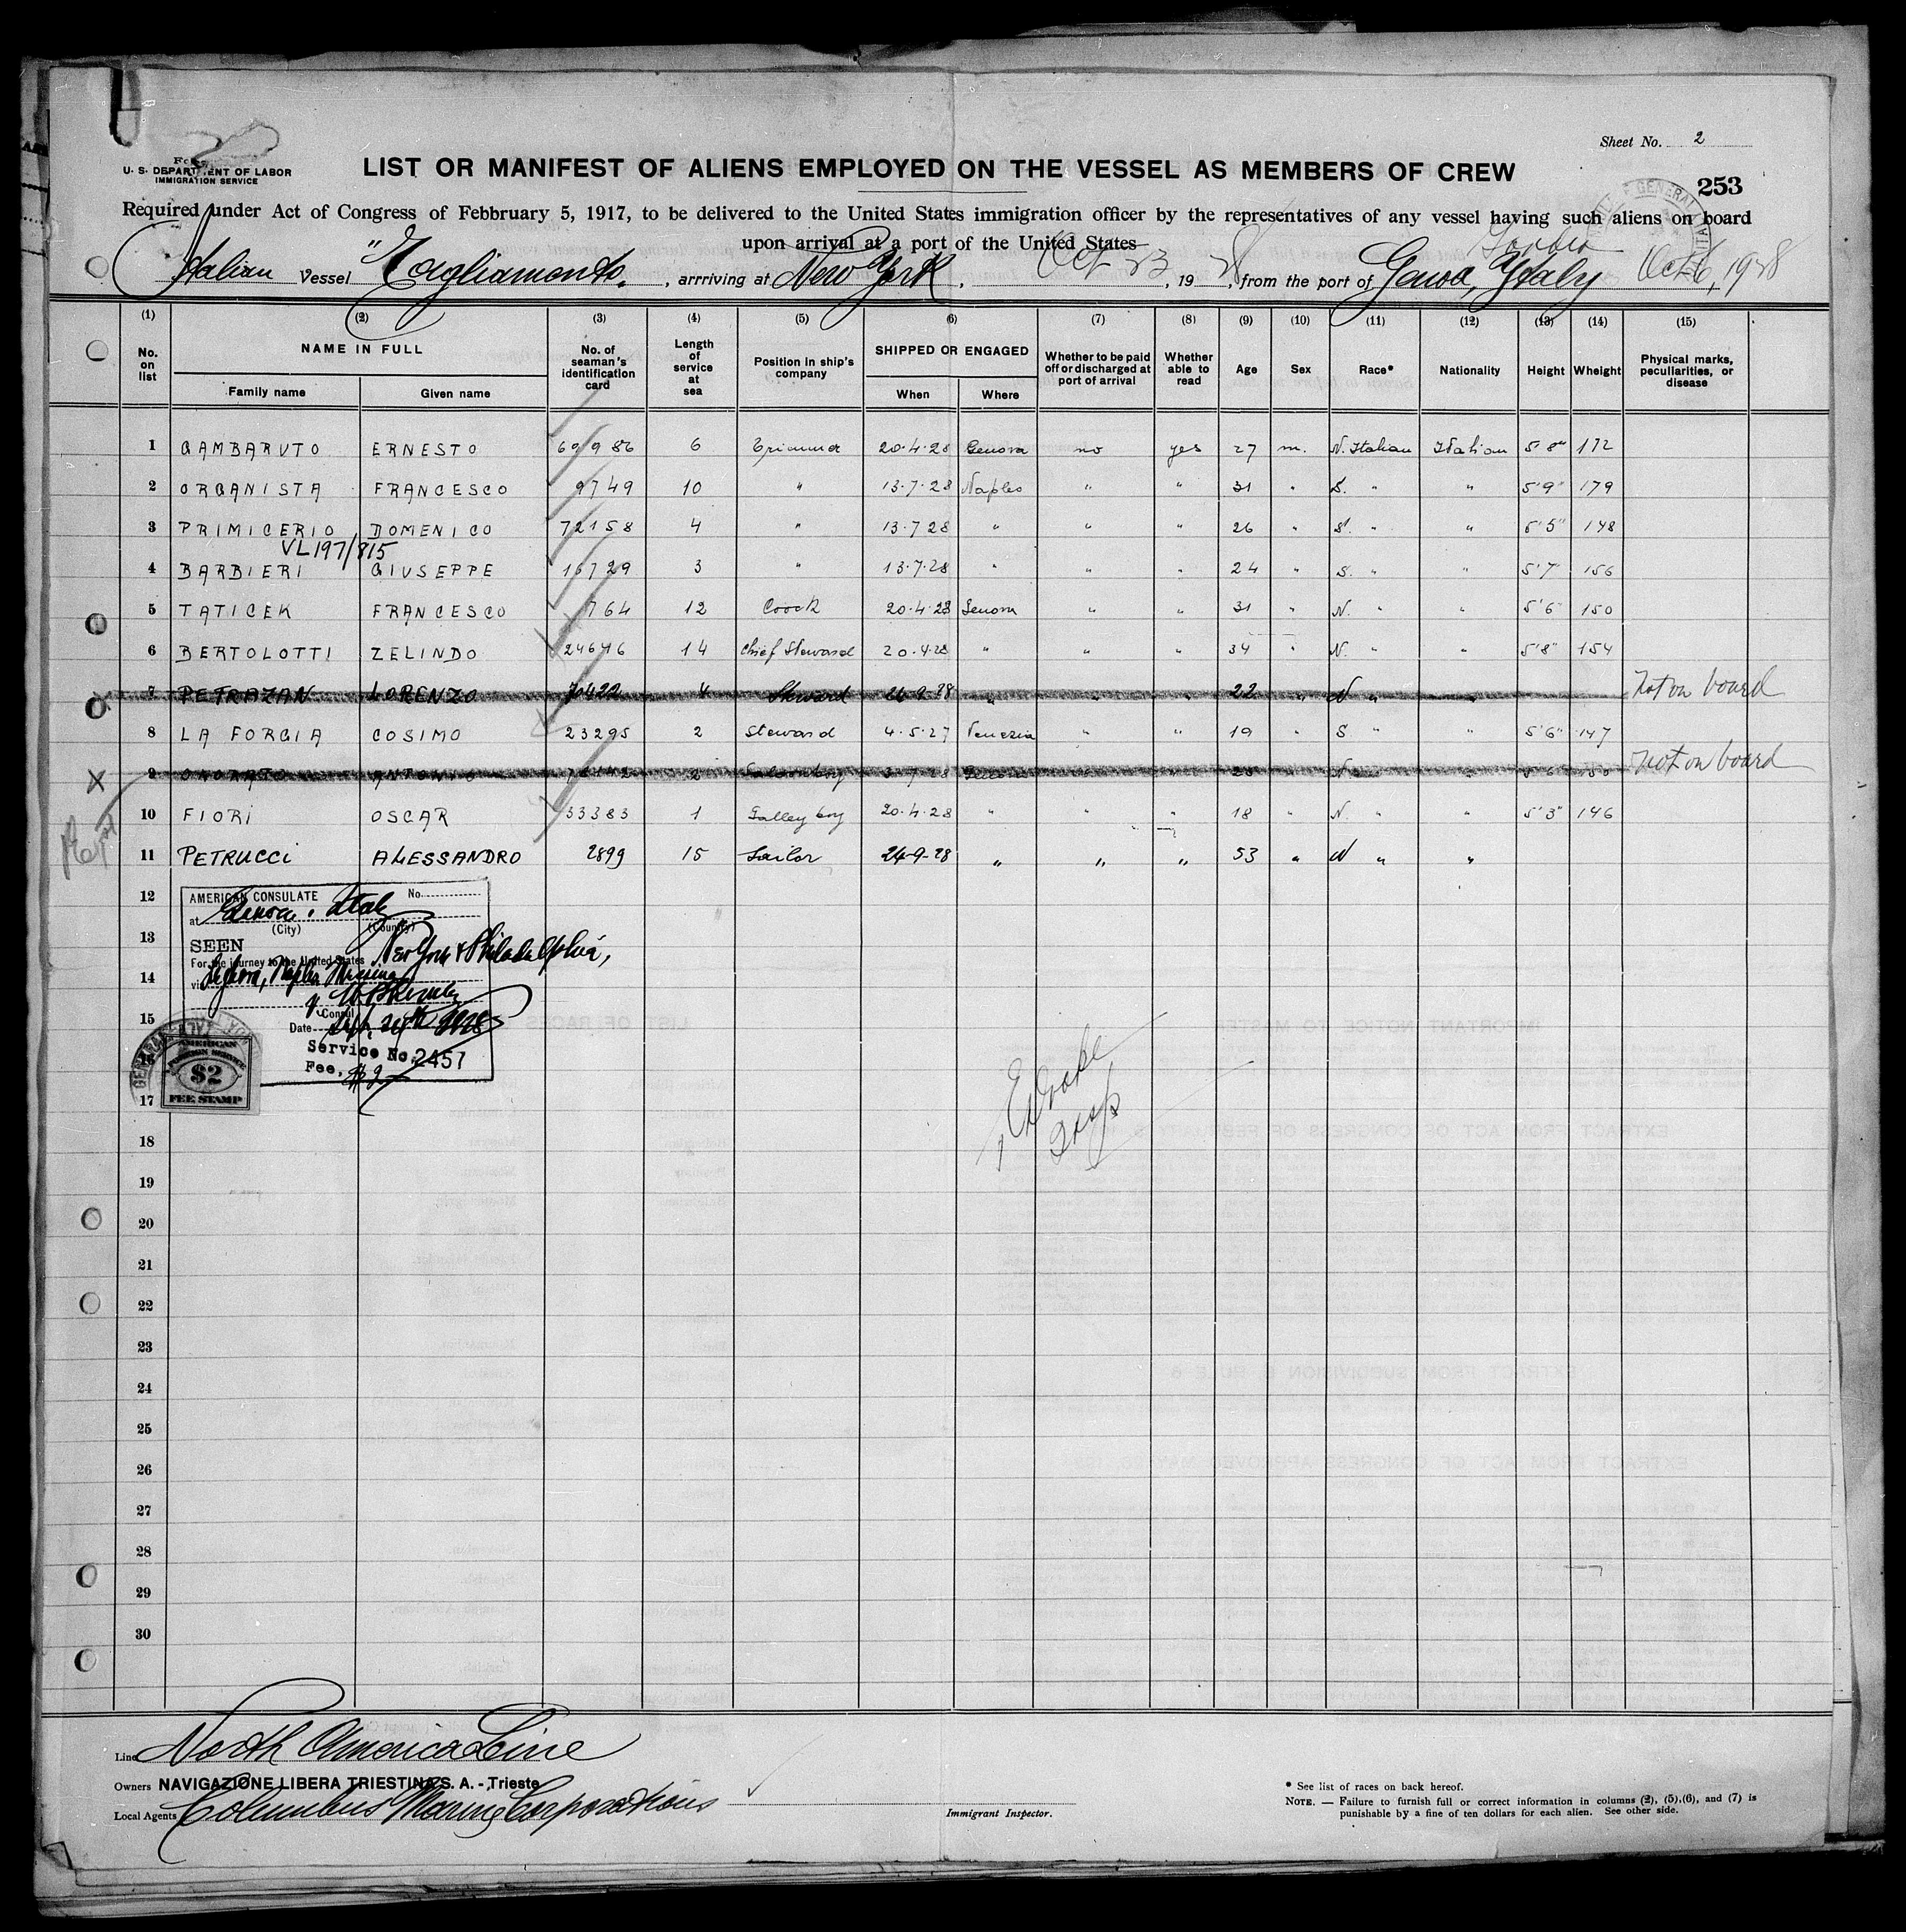 Sheet No. 2
U. S. DEPARTMENT OF LABOR
IMMIGRATION SERVICE
LIST OR MANIFEST OF ALIENS EMPLOYED ON THE VESSEL AS MEMBERS OF CREW
253
Required under Act of Congress of Febbruary 5, 1917, to be delivered to the United States immigration officer by the representatives of any vessel having such aliens on board
upon arrival at a port of the United States
Italian Vessel "Tagliamento, arrriving at New York, Oct 23, 1928, from the port of Genoa, Italy Oct 6, 1928
(1) (2) (3) (4) (5) (6) (7) (8) (9) (10) (11) (12) (13) (14) (15)
No. on list NAME IN FULL Family name Given name No. of seaman's identification card Length of service at sea Position in ship's company SHIPPED OR ENGAGED When Where Whether to be paid off or discharged at port of arrival Whether able to read Age Sex Race* Nationality Height Wheight Physical marks, peculiarities, or disease
1 GAMBARUTO ERNESTO 69986 6 Trimmer 20.4.28 Genova no yes 27 m. N. Italian Italian 5'8" 172
2 ORGANISTA FRANCESCO 9749 10 " 13.7.28 Naples " " 31 " S. " " 5'9" 179
3 PRIMICERIO DOMENICO 72158 4 " 13.7.28 " " " 26 " S. " " 5'5" 148
VL197/815
4 BARBIERI GIUSEPPE 16729 3 " 13.7.28 " " " 24 " S. " " 5'7" 156
5 TATICEK FRANCESCO 764 12 Coock 20.4.28 Genova " " 31 " N. " " 5'6" 150
6 BERTOLOTTI ZELINDO 24646 14 Chief Steward 20.4.28 " " " 34 " N. " " 5'8" 154
7 PETRAZAN LORENZO 70422 4 Steward 26-9-28 " " " 22 " N " " Not on board
8 LA FORGIA COSIMO 23295 2 Steward 4.5.27 Venezia " " 19 " S " " 5'6" 147
9 ONORATO ANTONIO 2 3.7.28 Genova Not on board
10 FIORI OSCAR 33383 1 Galley boy 20.4.28 " " " 18 " N. " " 5'3" 146
11 PETRUCCI ALESSANDRO 2899 15 Sailor 24-9-28 " " " 53 " N " "
12
AMERICAN CONSULATE No.
at Genoa, Italy
(City) (Country)
13
SEEN
For the journey to the United States New York & Philadelphia,
14
via Leghorn, Naples, Messina
Consul
15
Date Sept. 24th 1928
Service No. 2457
Fee, $2
16
AMERICAN
FOREIGN SERVICE
$2
FEE STAMP
17
18
19
20
21
22
23
24
25
26
27
28
29
30
Line North America Line
Owners NAVIGAZIONE LIBERA TRIESTINA S. A. - Trieste
Local Agents Columbus Marine Corporations
Immigrant Inspector.
* See list of races on back hereof.
NOTE. — Failure to furnish full or correct information in columns (2), (5),(6), and (7) is
punishable by a fine of ten dollars for each alien. See other side.